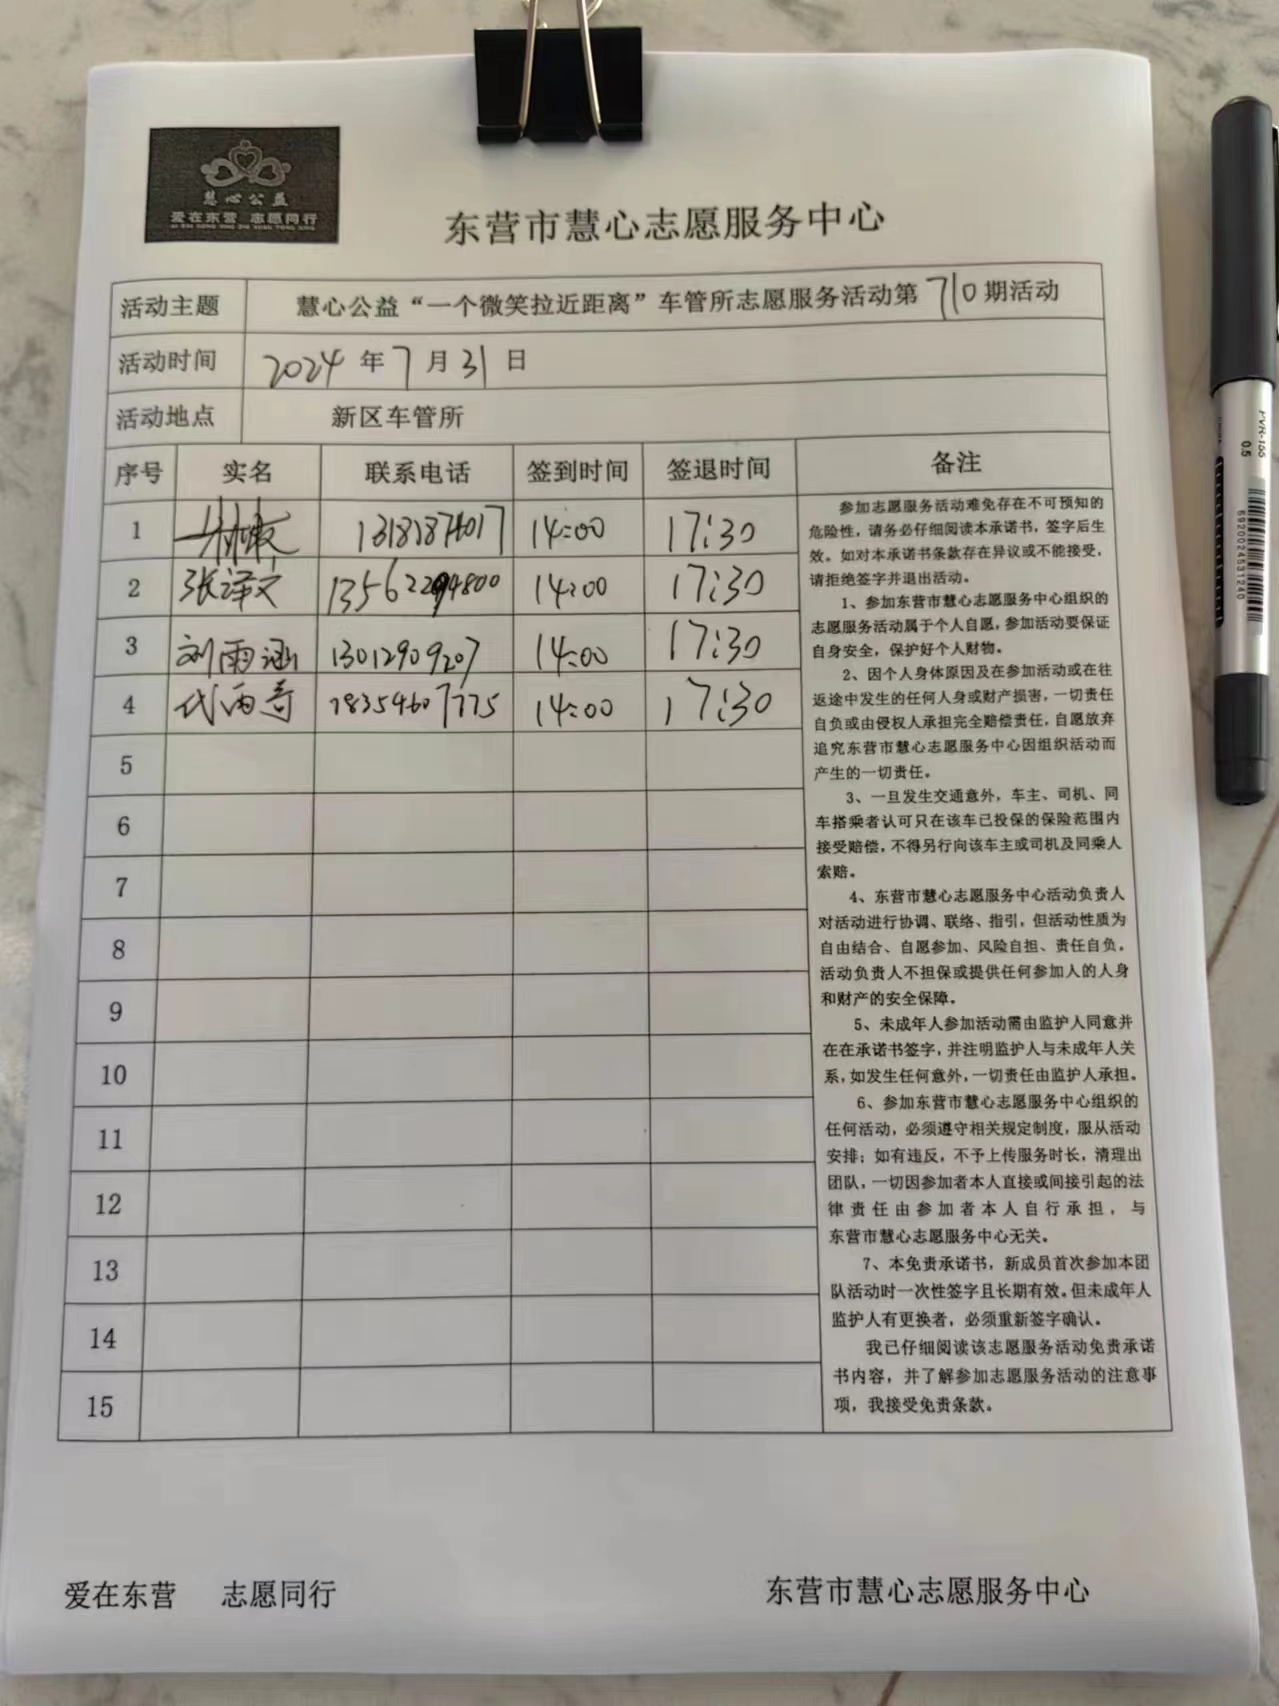 慧心公益
爱在东营 志愿同行
东营市慧心志愿服务中心
活动主题 慧心公益“一个微笑拉近距离”车管所志愿服务活动第710期活动
活动时间 2024年7月31日
活动地点 新区车管所
序号 实名 联系电话 签到时间 签退时间 备注
1 14:00 17:30
2 张泽文 14:00 17:30
3 刘雨涵 13012909207 14:00 17:30
4 代雨奇 14:00 17:30
5
6
7
8
9
10
11
12
13
14
15
参加志愿服务活动难免存在不可预知的
危险性，请务必仔细阅读本承诺书，签字后生
效。如对本承诺书条款存在异议或不能接受，
请拒绝签字并退出活动。
1、参加东营市慧心志愿服务中心组织的
志愿服务活动属于个人自愿，参加活动要保证
自身安全，保护好个人财物。
2、因个人身体原因及在参加活动或在往
返途中发生的任何人身或财产损害，一切责任
自负或由侵权人承担完全赔偿责任，自愿放弃
追究东营市慧心志愿服务中心因组织活动而
产生的一切责任。
3、一旦发生交通意外，车主、司机、同
车搭乘者认可只在该车已投保的保险范围内
接受赔偿，不得另行向该车主或司机及同乘人
索赔。
4、东营市慧心志愿服务中心活动负责人
对活动进行协调、联络、指引，但活动性质为
自由结合、自愿参加、风险自担、责任自负。
活动负责人不担保或提供任何参加人的人身
和财产的安全保障。
5、未成年人参加活动需由监护人同意并
在在承诺书签字，并注明监护人与未成年人关
系，如发生任何意外，一切责任由监护人承担。
6、参加东营市慧心志愿服务中心组织的
任何活动，必须遵守相关规定制度，服从活动
安排；如有违反，不予上传服务时长，清理出
团队，一切因参加者本人直接或间接引起的法
律责任由参加者本人自行承担，与
东营市慧心志愿服务中心无关。
7、本免责承诺书，新成员首次参加本团
队活动时一次性签字且长期有效。但未成年人
监护人有更换者，必须重新签字确认。
我已仔细阅读该志愿服务活动免责承诺
书内容，并了解参加志愿服务活动的注意事
项，我接受免责条款。
爱在东营 志愿同行 东营市慧心志愿服务中心
0.5
6920024531240